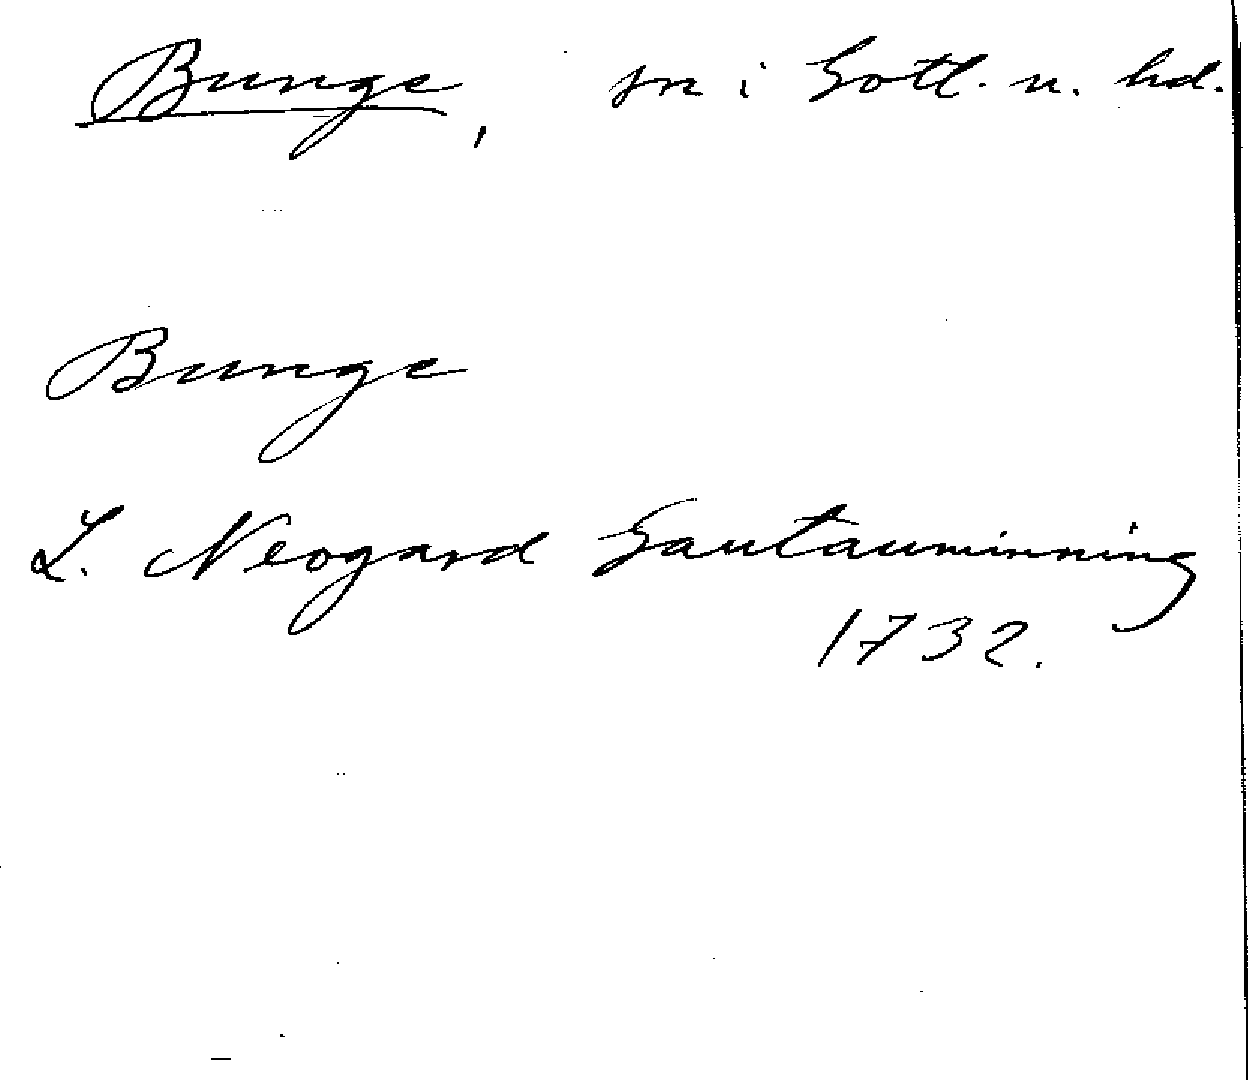 Bunge, sn i Gotl. n. hd.
Bunge
L. Neogard Gautauminning
1732.